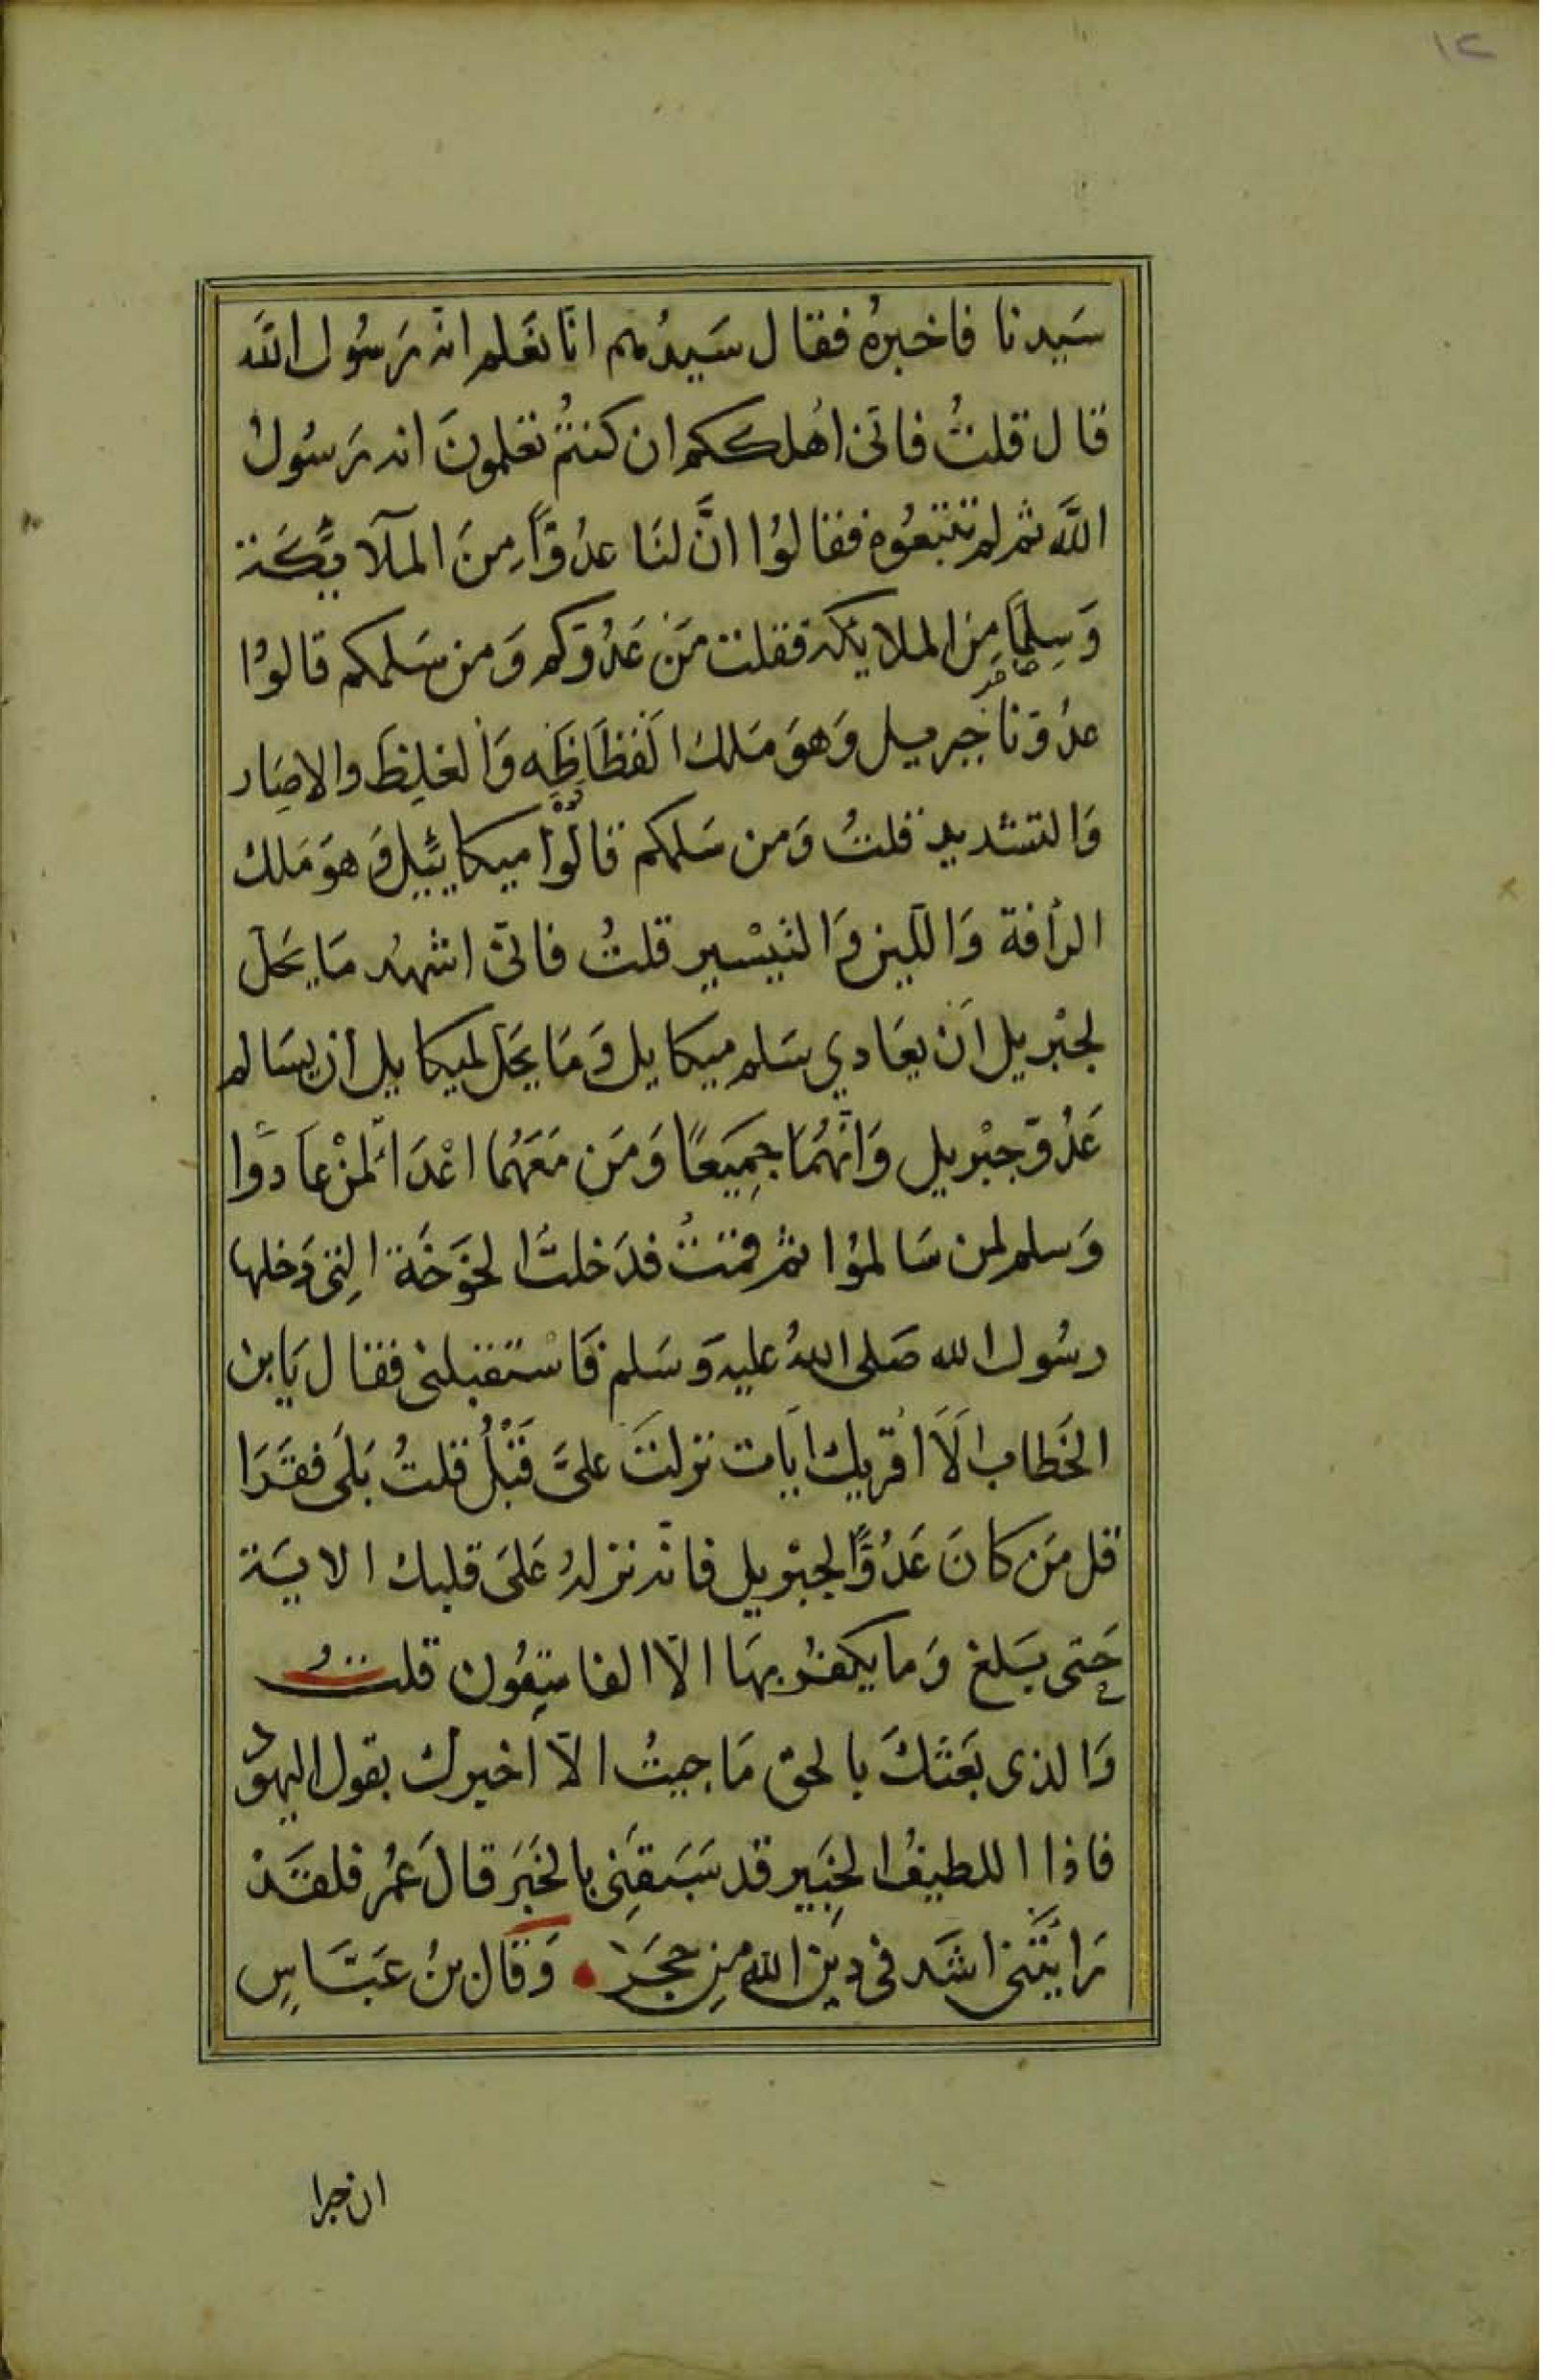 ١٢
سَيدنا فاخبرهُ فقال سَيدُهم انّا نعَلم انّه رَسُول الله
قال قلتُ فانى اهُلككم ان كنتُم تعَلمونَ انه رَسُولُ
اللَّه ثم لم تتبعُوه فقالوُا انَّ لنَا عدُوّاً مِنَ الملآئِكَة
وَسِلمًا مِن الملايكة فقلت مَن عَدُوّكم وَمن سَلمكم قالوُا
عدُوّنا جبريل وَهوَ مَلك الفَظَاظَه وَالغلِظَ والاصَِار
وَالتشديد قلتُ وَمن سَلمكم قالوُا ميكائيل وَهوَ مَلك
الرأفة وَاللّين وَالتيسْير قلتُ فانّى اشهُد مَا يَحَل
لجبْريل اَن يعَادي سَلم ميكايل وَمَا يحَل لميكايل أن يسَالم
عَدُوّ جبْريل وَانّهُمَا جمِيَعًا وَمَن مَعَهُما اعْدَاء لمنْ عادَوا
وَسلم لمن سَالموُا ثم قمتُ فدَخلتُ الخَوَخَة التِى دَخلها
رسُول الله صَلى اللهُ عليه وَسَلم فَاسْتقبلنى فقال يَابن
الخَطاب اَلَا اُقريك ايَات نزلتَ علىَّ قَبْلُ قلتُ بَلَى فقَرَا
قل مَن كانَ عَدُوًّا لجبْريل فانّه نزلهُ عَلىَ قلبك الايَة
حَتى بَلغ وَما يكفرُ بهَا الّا الفاسِقُون قلتُ
وَالذى بَعَثَكَ بالحق مَا جيتُ الّا اخبرك بقول اليهوُد
فاذا اللطيفُ الخِبَير قد سَبَقَنِى بالخَبَر قالَ عُمر فلقَدْ
رَايَتنى اشَد فى دِين الله مِن حجَر وَقال بنُ عَبّاسٍ
ان حبرا